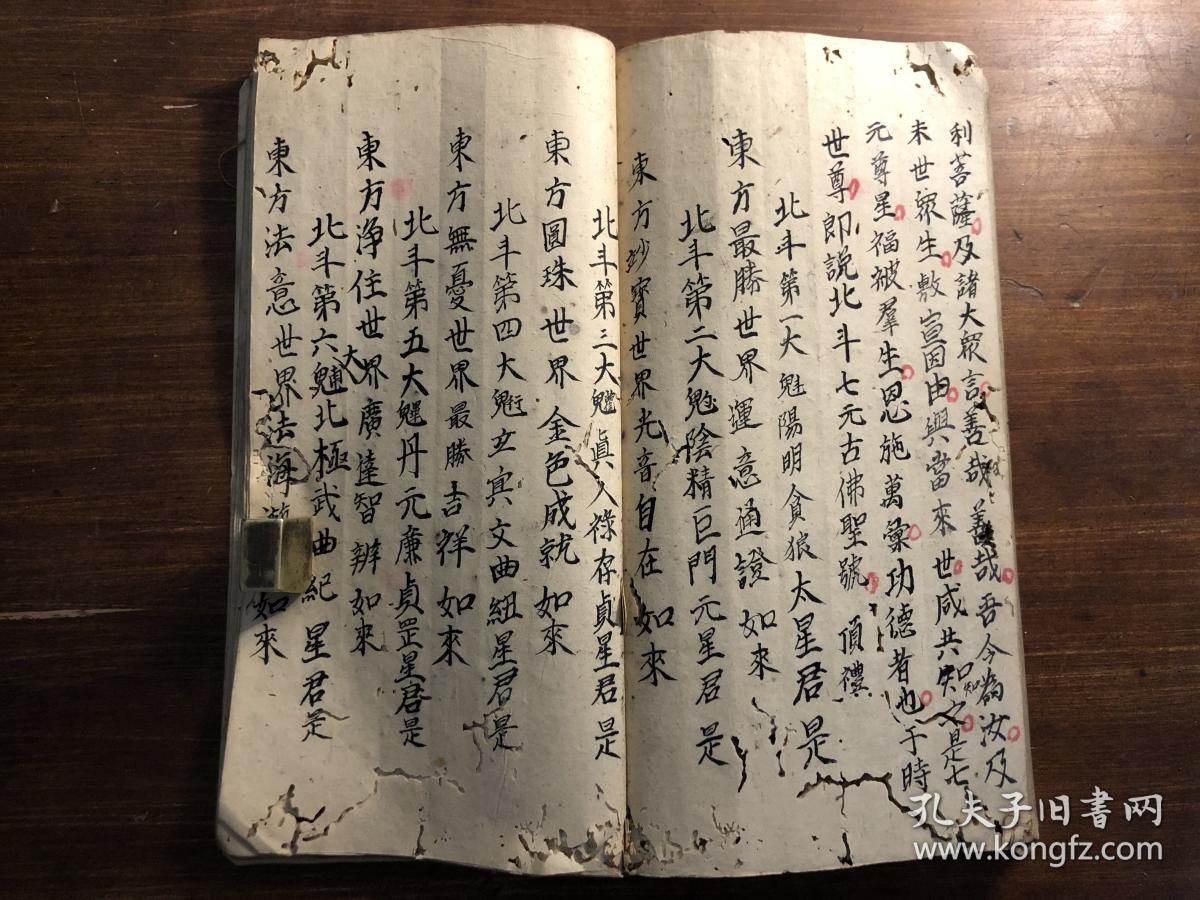 利菩薩及諸大眾言善哉善哉吾今為汝及
末世眾生敷宣因由與當來世咸共知之是七
元尊星福被羣生恩施萬彙功德者也于時
世尊即說北斗七元古佛聖號 頂禮
北斗第一大魁陽明貪狼太星君是
東方最勝世界運意通證如來
北斗第二大魁陰精巨門元星君是
東方妙寶世界光音自在如來
北斗第三大 真人祿存貞星君是
東方圓珠世界金色成就如來
北斗第四大 玄冥文曲紐星君是
東方無憂世界最勝吉祥如來
北斗第五大 丹元廉貞罡星君是
東方淨住世界廣達智辨如來
北斗第六大 北極武曲紀星君是
東方法意世界法海遊 如來
孔夫子旧書网
www.kongfz.com